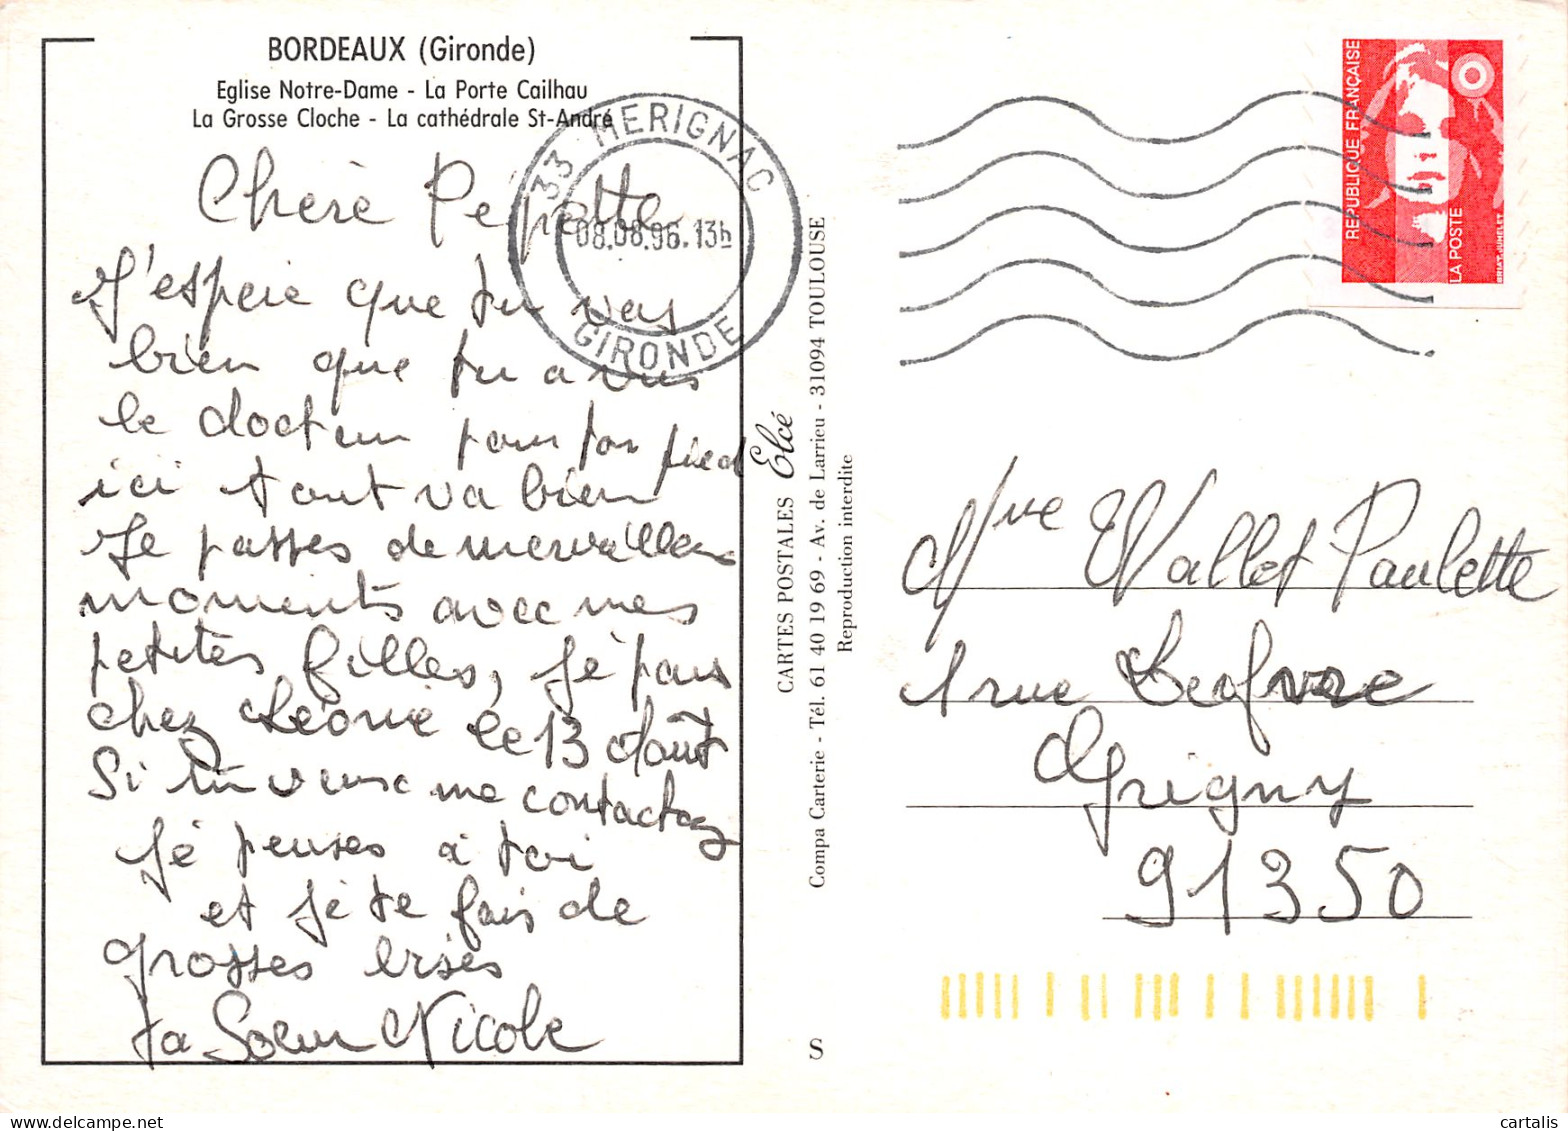 BORDEAUX (Gironde)
Eglise Notre-Dame - La Porte Cailhau
La Grosse Cloche - La cathédrale St-André
33 MERIGNAC
08.08.96.13h
GIRONDE
Chère Pépette
J'espere que tu vas
bien que tu a vus
le docteur pour ton pied
ici tout va bien
Je passes de merveilleux
moments avec mes
petites filles, Jé pars
chez Léone le 13 Août
Si tu veux me contactez
Jé penses à toi
et Jé te fais de
grosses bises
ta Soeur Nicole
CARTES POSTALES Elcé
Compa Carterie - Tél. 61 40 19 69 - Av. de Larrieu - 31094 TOULOUSE
Reproduction interdite
S
REPUBLIQUE FRANÇAISE
LA POSTE
BRIAT-JUMELET
Mme Vallet Paulette
1 rue
Grigny
91350
cartalis